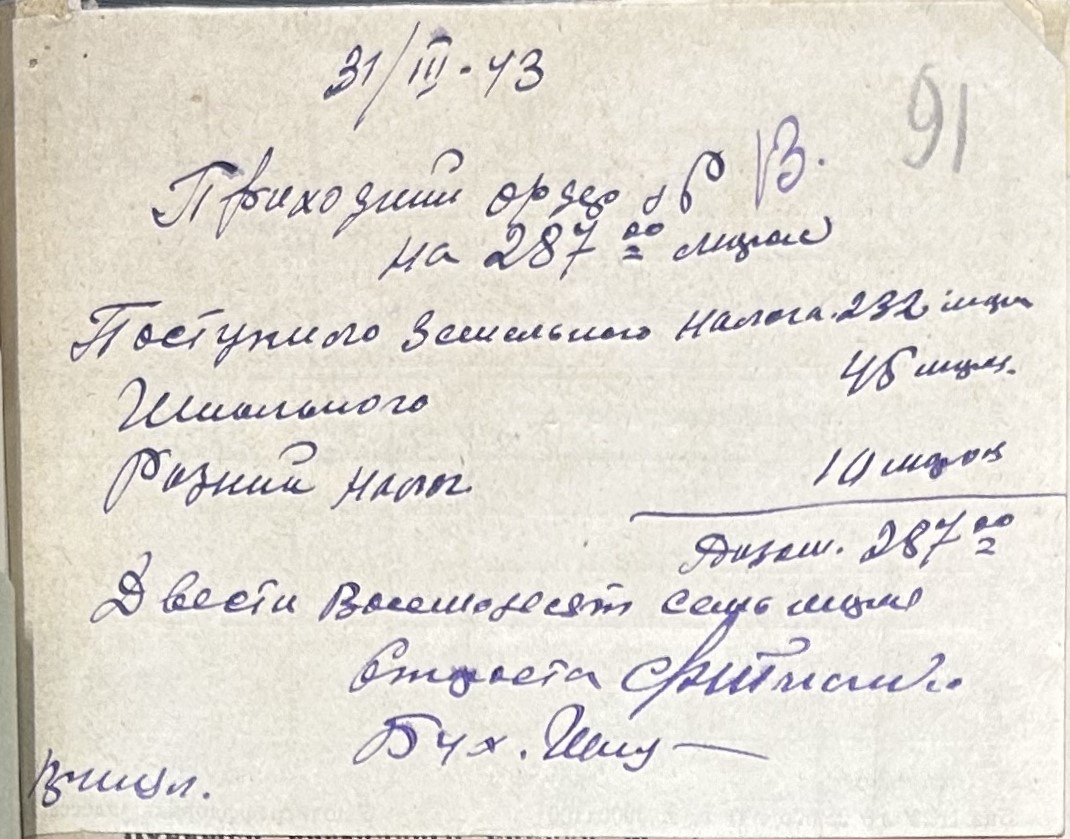 31/III-43
91
Приходний ордер № 13.
на 287 00 марок
Поступило Земельного налога. 232 мар
Школьного 45 мар.
Разний налог. 10 марок
287 00
Двести Восемдесят семь марок
Староста
Бух.